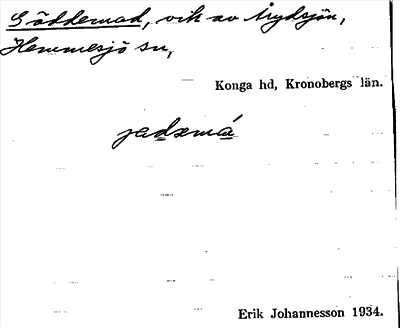 Gäddemad, vik av Årydsjön,
Hemmesjö sn,
Konga hd, Kronobergs län.
jadꞷmá
Erik Johannesson 1934.